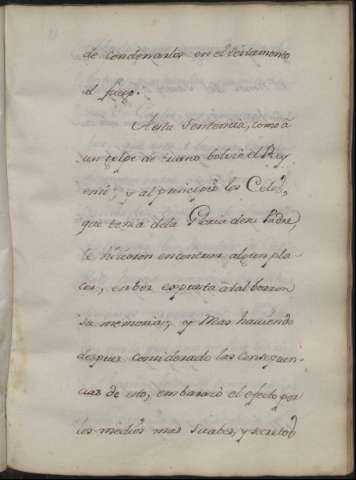 de condenarlos en el Testamento
al fuego.
Aesta Sentencia, como â
un golpe de mano bolvió el Rey
en si y al principio los Celos,
que tenia dela Gloria desu Padre,
le hicieron encontrar algun pla
cer, en ber expuesta â tal borron
su memoria; y Mas haviendo
despues considerado las consequen
cias de esto, embarazó el efecto por
los medios mas suabes, y secretos